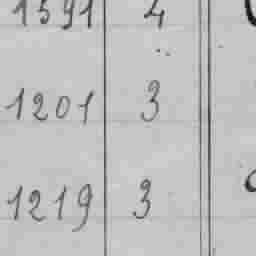 1591 4
1201 3
1219 3